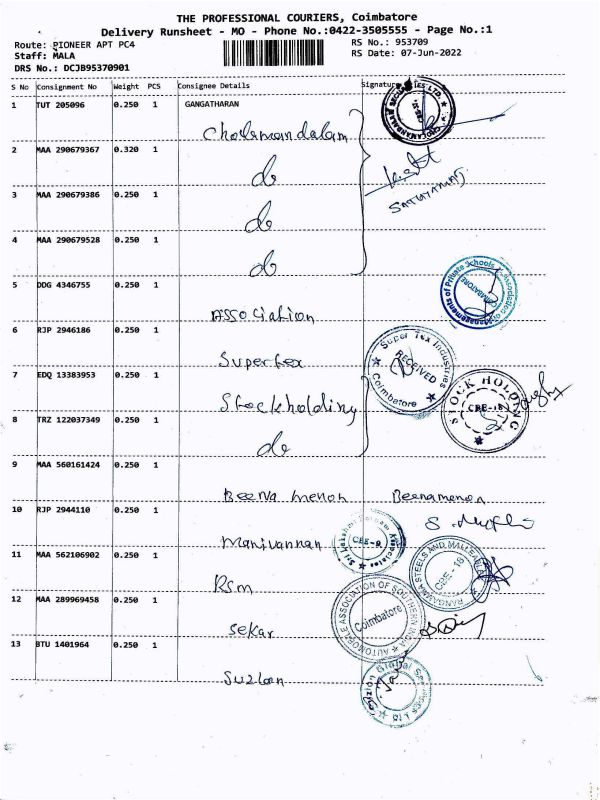 THE PROFESSIONAL COURIERS, Coimbatore
Delivery Runsheet - MO - Phone No.:0422-3505555 - Page No.:1
Route: PIONEER APT PC4 RS No.: 953709
Staff: MALA RS Date: 07-Jun-2022
DRS No.: DCJB95370901
S No Consignment No Weight PCS Consignee Details Signature
1 TUT 205096 0.250 1 GANGATHARAN
Cholamandalam
2 MAA 290679367 0.320 1
do
SATHYAMURTHY
3 MAA 290679386 0.250 1
do
4 MAA 290679528 0.250 1
do
5 DDG 4346755 0.250 1
Association
Association of Managements of Private Schools
COIMBATORE
6 RJP 2946186 0.250 1
Supertex
Super Tex Industries
RECEIVED
Coimbatore
7 EDQ 13383953 0.250 1
Stockholding
STOCK HOLDING
CBE-18
8 TRZ 122037349 0.250 1
do
9 MAA 560161424 0.250 1
Beena menon Beenamenon
10 RJP 2944110 0.250 1
Manivannan
CBE-9
11 MAA 562106902 0.250 1
RSM
CBE - 18
12 MAA 289969458 0.250 1
Sekar
AUTOMOBILE ASSOCIATION OF SOUTHERN INDIA
Coimbatore
13 BTU 1401964 0.250 1
Suzlon
Suzlon Global Services Ltd